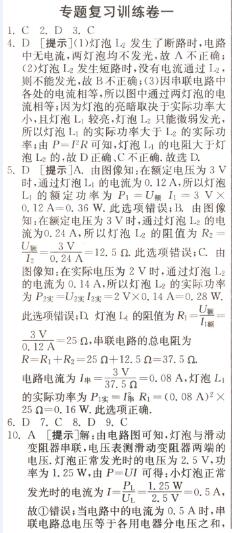 专题复习训练卷一
1. C 2. D 3. C
4. D [提示](1)灯泡 L₂ 发生了断路时,电路
中无电流,两灯泡均不发光,故 A 不正确;
(2)灯泡 L₂ 发生短路时,没有电流通过 L₂,
则不能发光,故 B 不正确;(3)因串联电路中
各处的电流相等,所以图中通过两灯泡的电
流相等;因为灯泡的亮暗取决于实际功率大
小,且灯泡 L₁ 较亮,灯泡 L₂ 只能微弱发光,
所以灯泡 L₁ 的实际功率大于 L₂ 的实际功
率;由 P=I²R 可知,灯泡 L₁ 的电阻大于灯
泡 L₂ 的,故 D 正确、C 不正确,故选 D.
5. D [提示]A. 由图像知:在额定电压为 3 V
时,通过灯泡 L₁ 的电流为 0.12 A,所以灯泡
L₁ 的额定功率为 P₁=U额 I₁=3 V×
0.12 A=0.36 W. 此选项错误;B. 由图像
知:在额定电压为 3 V 时,通过灯泡 L₂ 的电
流为 0.24 A,所以灯泡 L₂ 的阻值为 R₂=
U额/I₂=3 V/0.24 A=12.5 Ω. 此选项错误;C. 由
图像知:在实际电压为 2 V 时,通过灯泡 L₂
的电流为 0.14 A,所以灯泡 L₂ 的实际功率
为 P2实=U2实 I2实=2 V×0.14 A=0.28 W.
此选项错误;D. 灯泡 L₁ 的阻值为 R₁=U额/I1额=
3 V/0.12 A=25 Ω,串联电路的总电阻为
R=R₁+R₂=25 Ω+12.5 Ω=37.5 Ω.
电路电流为 I串=3 V/37.5 Ω=0.08 A,灯泡 L₁
的实际功率为 P1实=I²串 R₁=(0.08 A)²×
25 Ω=0.16 W. 此选项正确.
6. D 7. C 8. D 9. C
10. A [提示]解:由电路图可知,灯泡与滑动
变阻器串联,电压表测滑动变阻器两端的
电压.灯泡正常发光时的电压为 2.5 V,功
率为 1.25 W,由 P=UI 可得:小灯泡正常
发光时的电流为 I=PL/UL=1.25 W/2.5 V=0.5 A,
故①错误;当电路中的电流为 0.5 A 时,串
联电路总电压等于各用电器分电压之和,